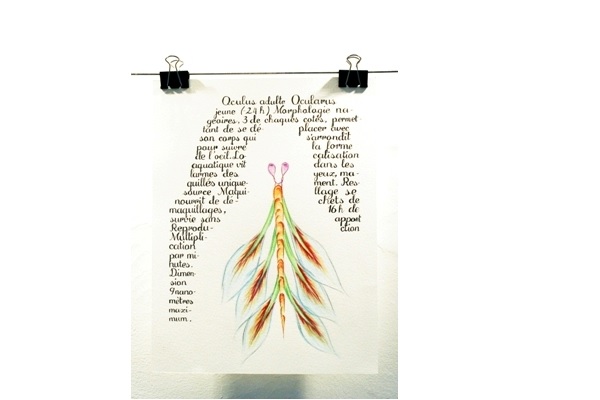 Oculus adulte Ocularus
jeune (24h) Morphologie na-
geoires, 3 de chaques côtés, permet-
tant de se dé placer avec
son corps qui s'arrondit
pour suivre la forme
de l'oeil.Lo calisation
aquatique vit dans les
larmes des yeux, ma-
quillés unique- ment. Res-
source Maqui- llage se
nourrit de dé- chets de
maquillages, 16h de
survie sans apport
Reprodu- ction
Multipli-
cation
par mi-
nutes.
Dimen-
sion
9nano-
mètres
maxi-
mum.